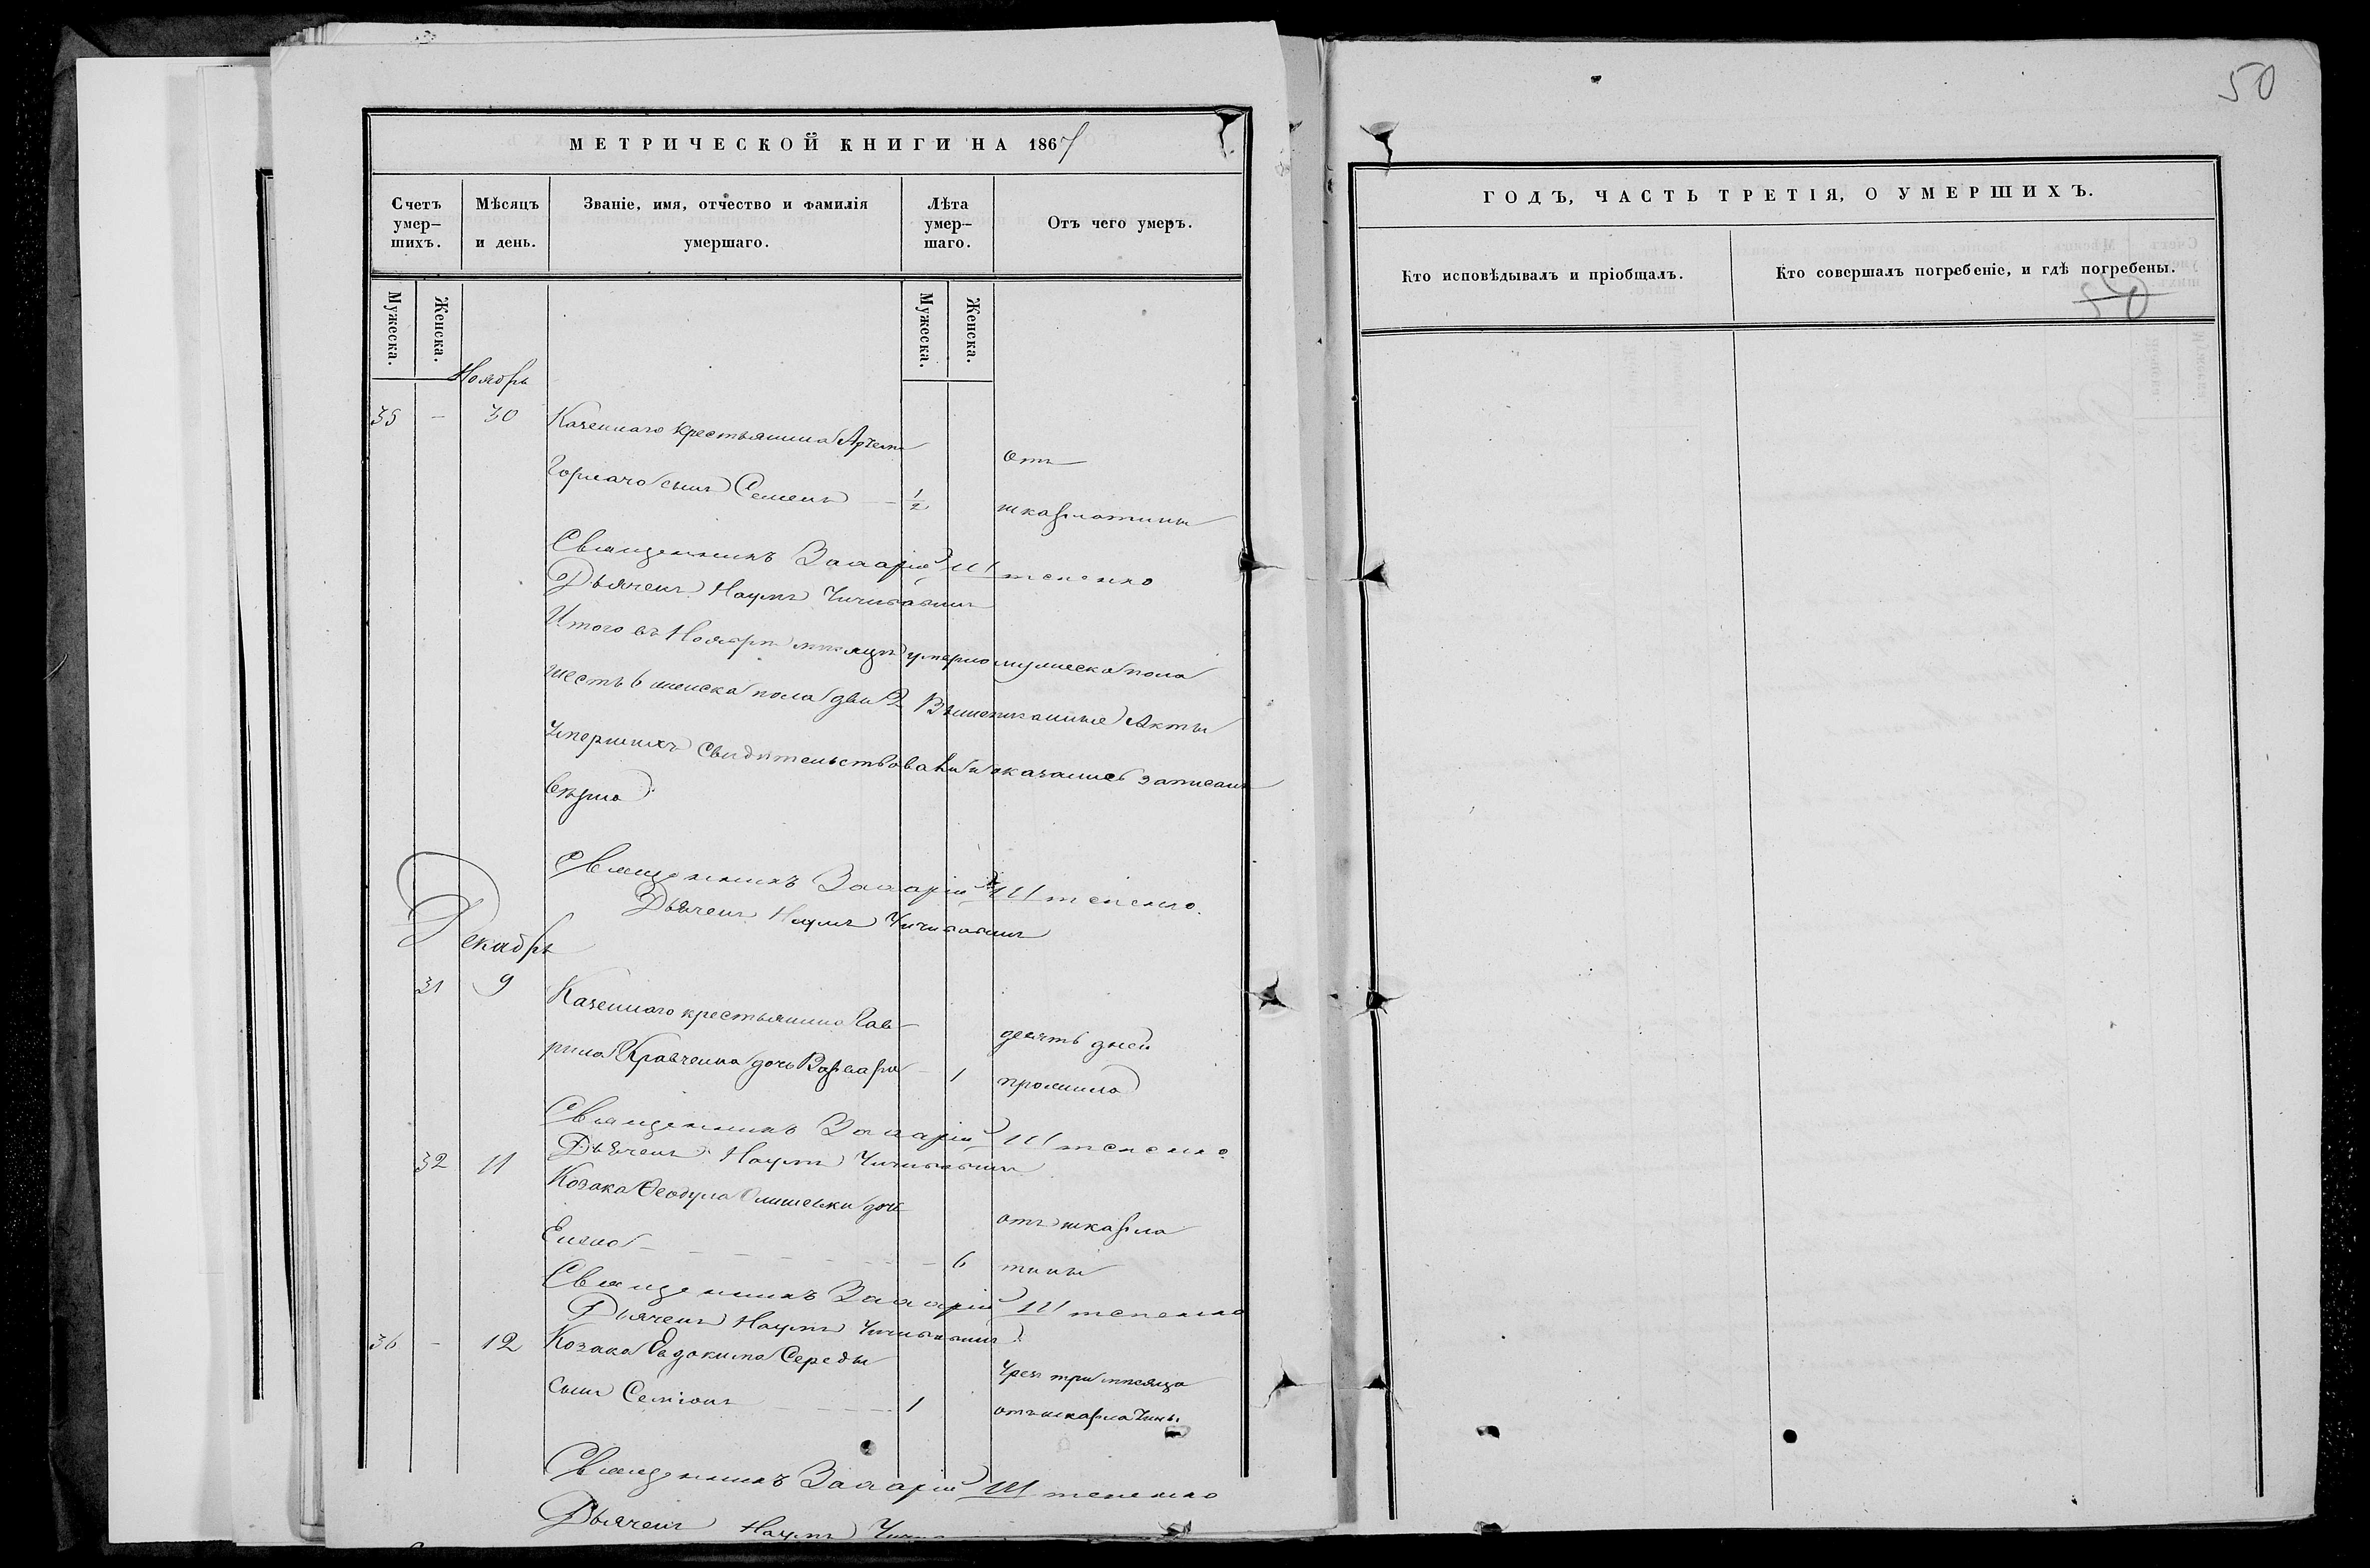 50
МЕТРИЧЕСКОЙ КНИГИ НА 1867
Счетъ умер-шихъ.
Мѣсяцъ и день.
Званіе, имя, отчество и фамилія умершаго.
Лѣта умер-шаго.
Отъ чего умеръ.
Мужеска.
Женска.
Мужеска.
Женска.
Ноябрь
35 - 30 Казеннаго крестьянина
отъ
сынъ Семенъ - 1/2
шкарлатины
Священникъ Штепенко
Дьячекъ Наумъ
Итого въ Ноябрѣ мѣсяцѣ умерло мужеска пола
шесть 6 женска пола две 2 Вышеписанные Акты
Умершихъ Свидѣтельствовали и оказались записаны
вѣрно
Священникъ Штепенко.
Дьячекъ Наумъ
Декабрь
31 9 Казеннаго крестьянина Гав-
девять дней
рила Кравченка дочь Варвара - 1
прожила
Священникъ Штепенко
Дьячекъ Наумъ
32 11
Козака Феодула дочь
отъ шкарла
- 6 тины
Священникъ Штепенко
Дьячекъ Наумъ
36 - 12 Козака Евдокима Середы
Чрезъ три мѣсяца
сынъ - 1
отъ шкарлатины.
Священникъ Штепенко
Дьячекъ Наумъ
ГОДЪ, ЧАСТЬ ТРЕТІЯ, О УМЕРШИХЪ.
Кто исповѣдывалъ и пріобщалъ.
Кто совершалъ погребеніе, и гдѣ погребены.
50